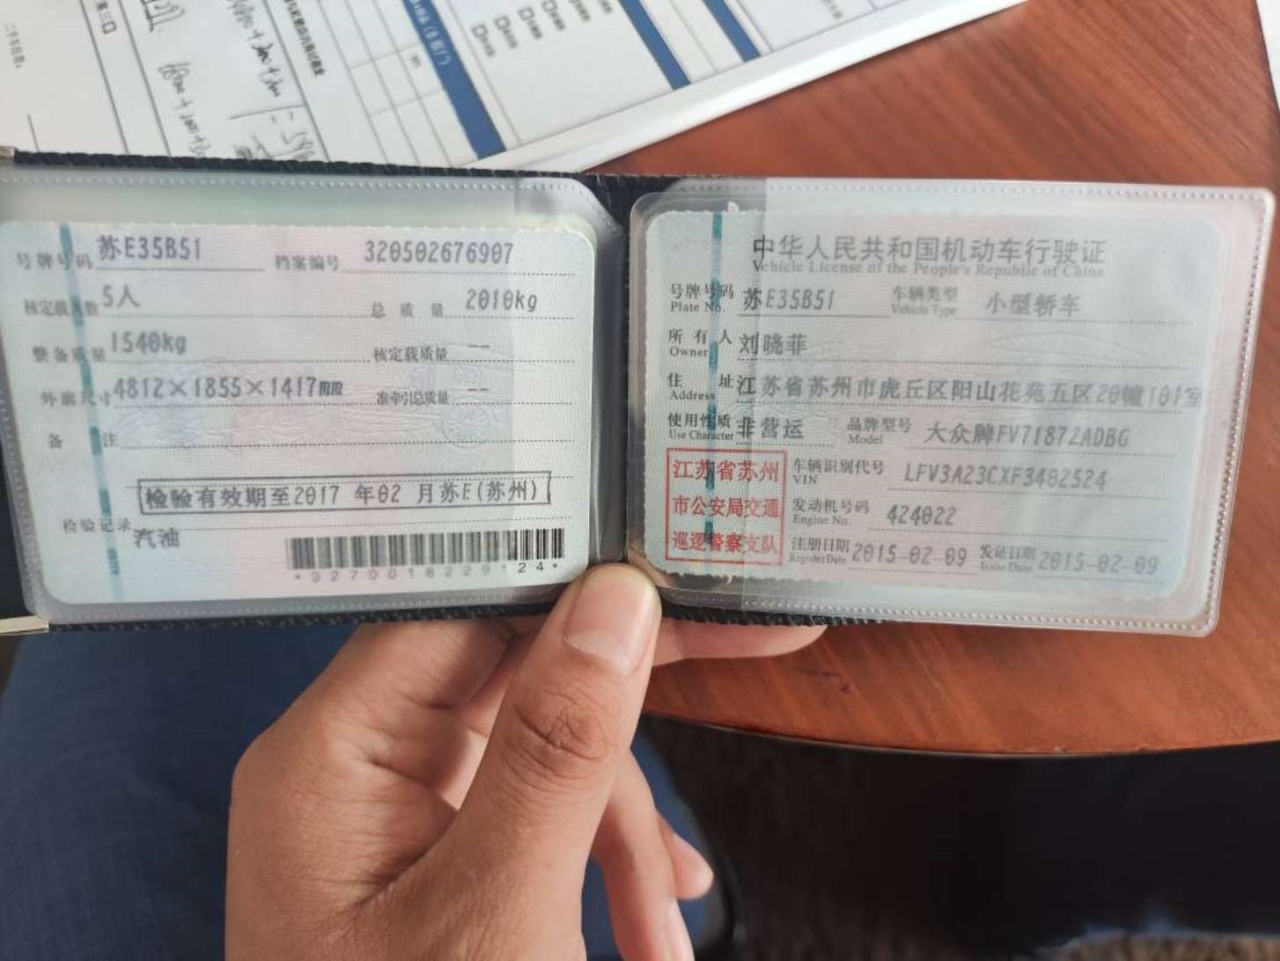 号牌号码 苏E35B51 档案编号 320502676907
核定载人数 5人 总质量 2010kg
整备质量 1540kg 核定载质量 --
外廓尺寸 4812×1855×1417mm 准牵引总质量 --
备注
检验有效期至2017 年02 月苏E(苏州)
检验记录
汽油
*3270018229124*
中华人民共和国机动车行驶证
Vehicle License of the People's Republic of China
号牌号码 苏E35B51 车辆类型 小型轿车
Plate No. Vehicle Type
所有人 刘晓菲
Owner
住址 江苏省苏州市虎丘区阳山花苑五区20幢101室
Address
使用性质 非营运 品牌型号 大众牌FV7187ZADBG
Use Character Model
江苏省苏州
市公安局交通
巡逻警察支队
车辆识别代号 LFV3A23CXF3402524
VIN
发动机号码 424022
Engine No.
注册日期 2015-02-09 发证日期 2015-02-09
Register Date Issue Date